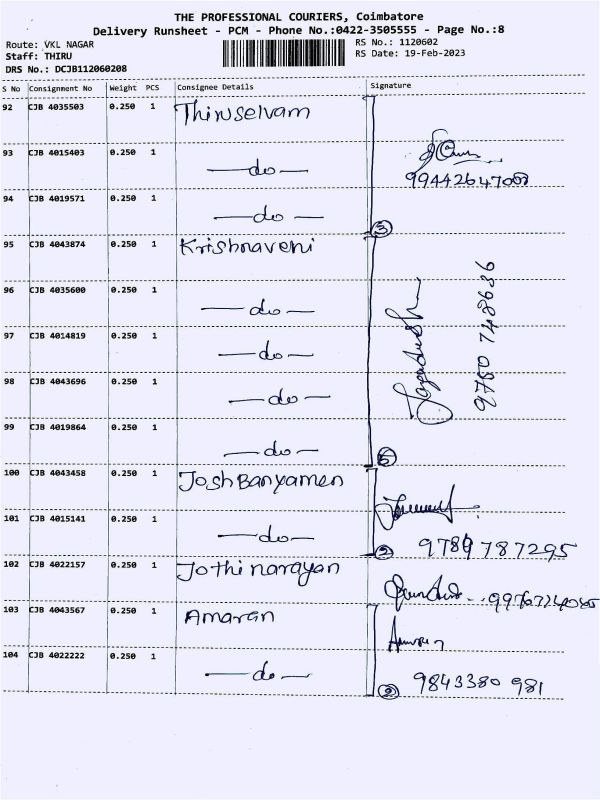 THE PROFESSIONAL COURIERS, Coimbatore
Delivery Runsheet - PCM - Phone No.:0422-3505555 - Page No.:8
Route: VKL NAGAR
RS No.: 1120602
Staff: THIRU
RS Date: 19-Feb-2023
DRS No.: DCJB112060208
S No Consignment No Weight PCS Consignee Details Signature
92 CJB 4035503 0.250 1 Thiruselvam
93 CJB 4015403 0.250 1 —do—
94 CJB 4019571 0.250 1 —do— 3
95 CJB 4043874 0.250 1 Krishnaveni
96 CJB 4035600 0.250 1 —do—
97 CJB 4014819 0.250 1 —do—
98 CJB 4043696 0.250 1 —do—
9760 748636
99 CJB 4019864 0.250 1 —do— 5
100 CJB 4043458 0.250 1 JoshBanyamen
101 CJB 4015141 0.250 1 —do— 2 9789 787295
102 CJB 4022157 0.250 1 Jothinarayan
103 CJB 4043567 0.250 1 Amaran
104 CJB 4022222 0.250 1 —do— 2 9843380 981